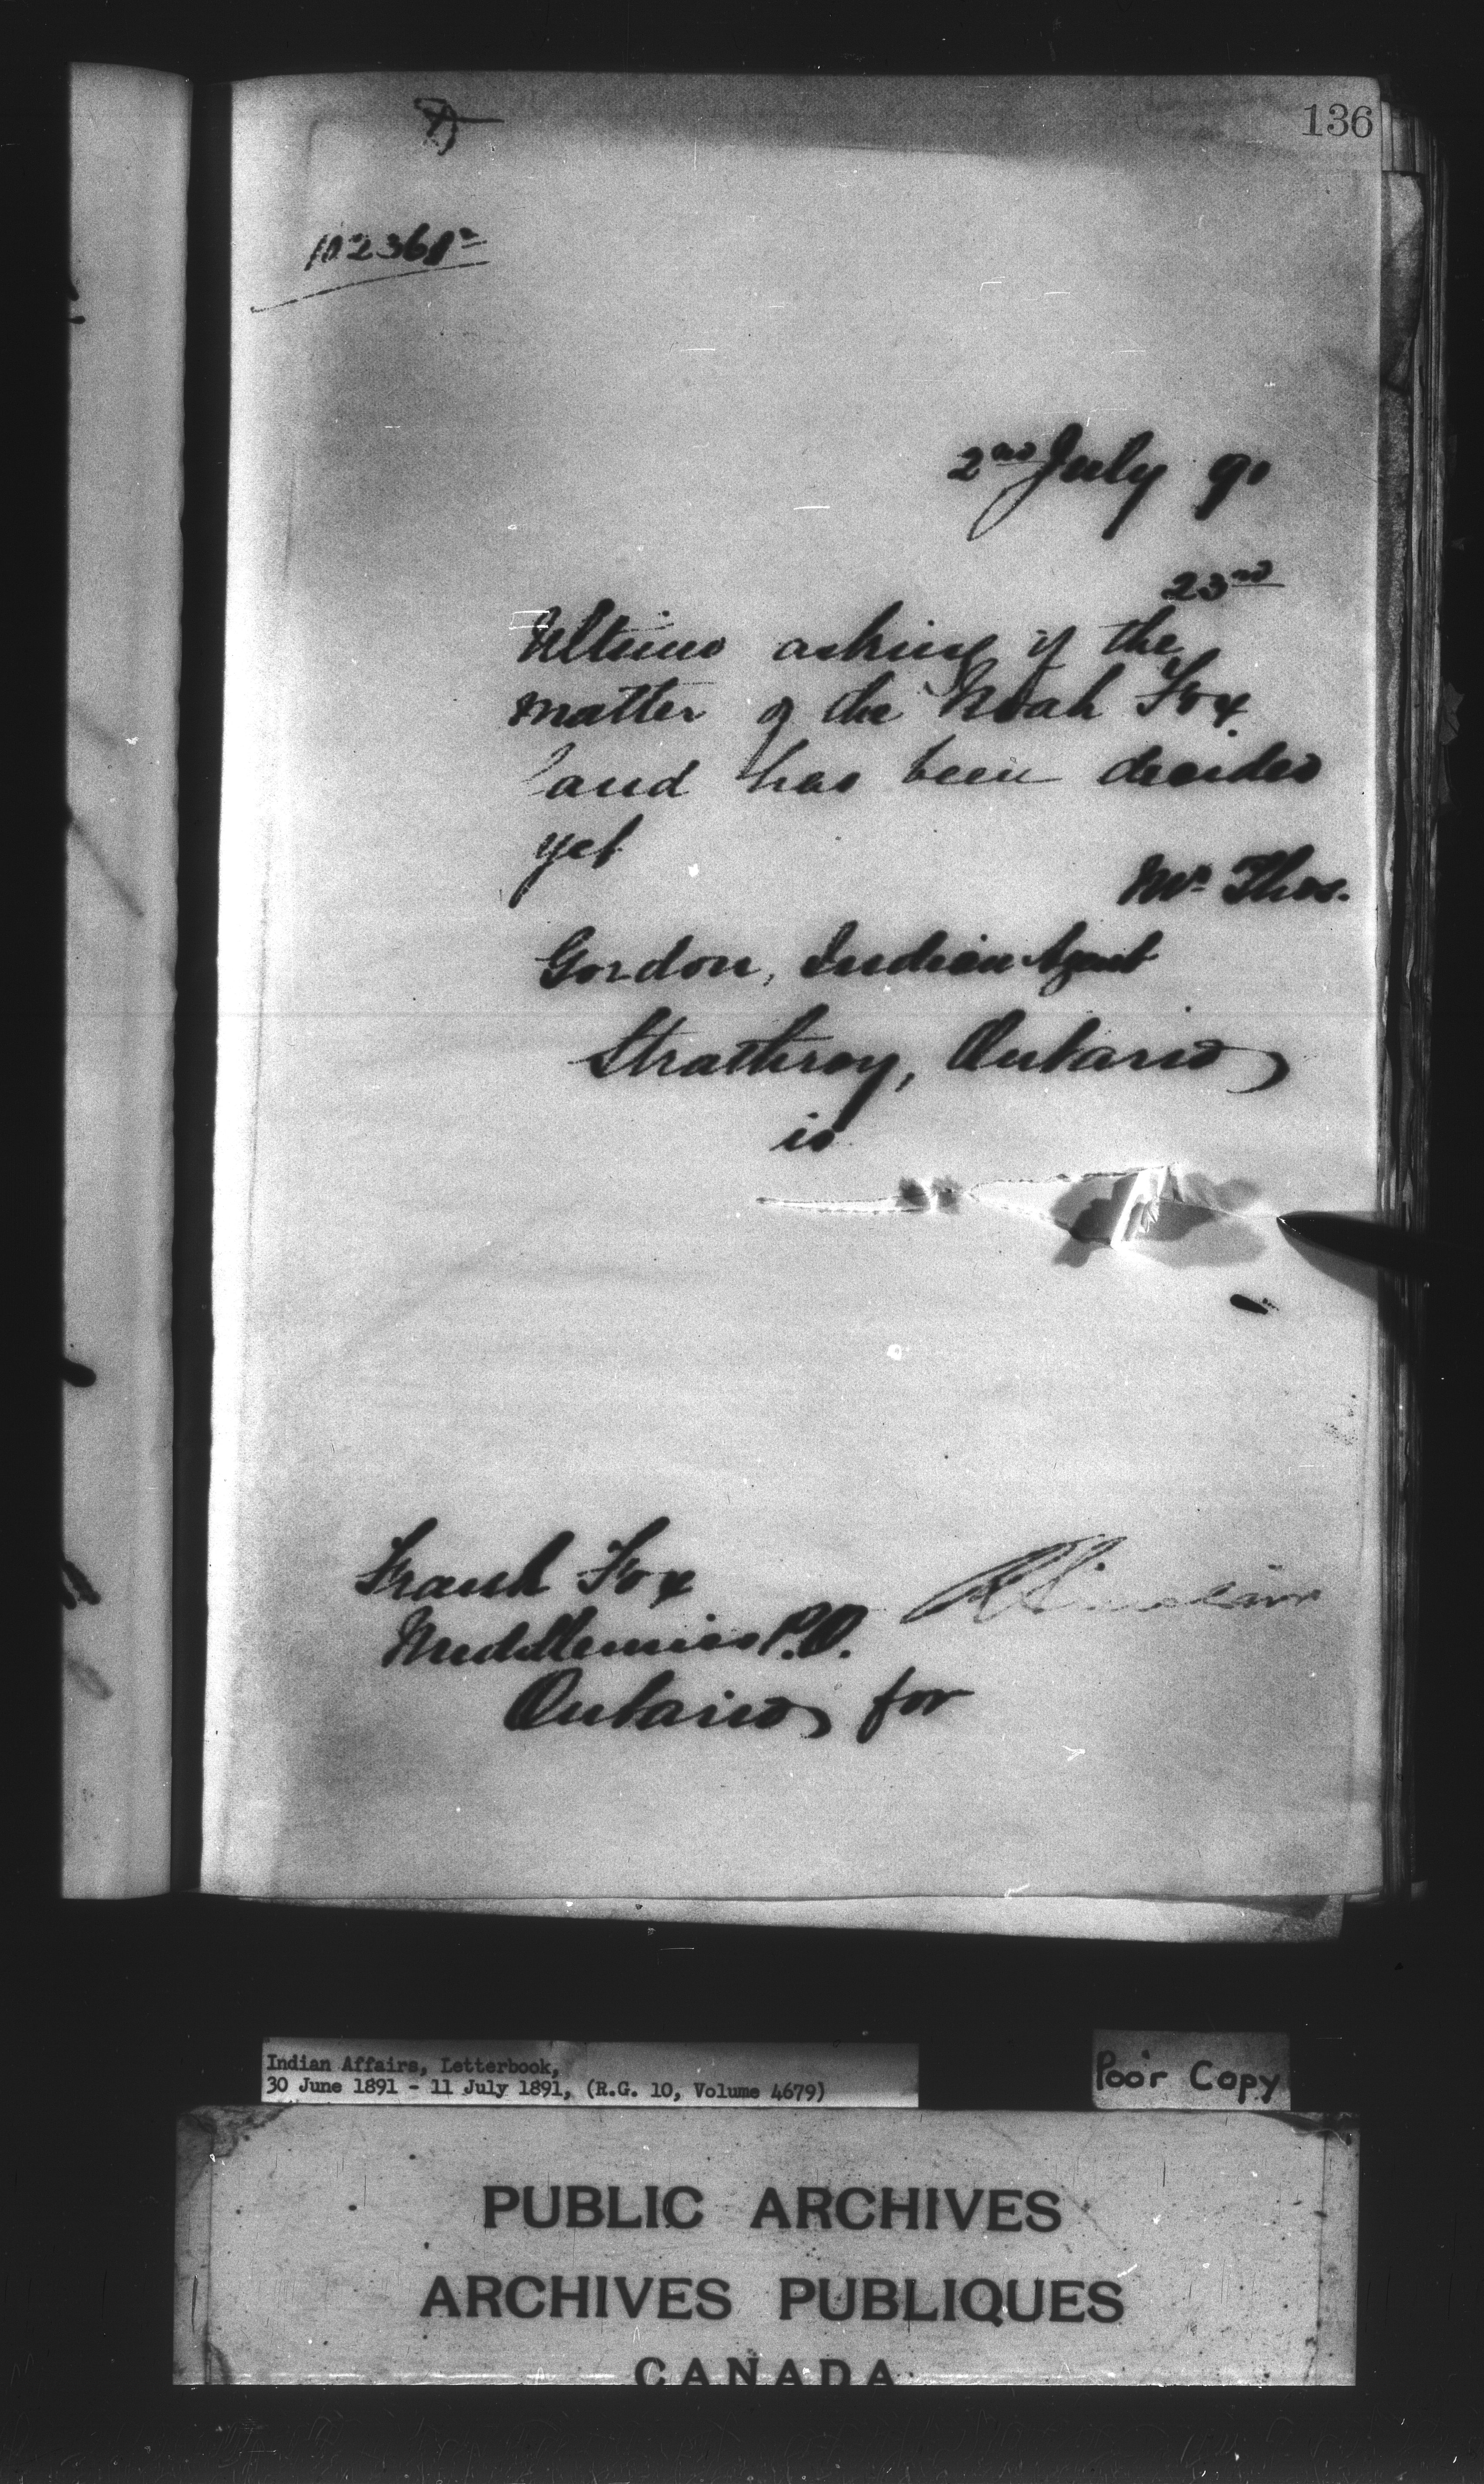 136
2nd July 91
23rd
Ultimo asking if the
matter of the Noah Fox
land has been decided
yet
Mr Thos.
Gordon, Indian Agent
Strathroy, Ontario
is
Frank Fox
Middlemiss P.O.
R Sinclair
Ontario for
Indian Affairs, Letterbook,
30 June 1891 - 11 July 1891, (R.G. 10, Volume 4679)
Poor Copy
PUBLIC ARCHIVES
ARCHIVES PUBLIQUES
CANADA